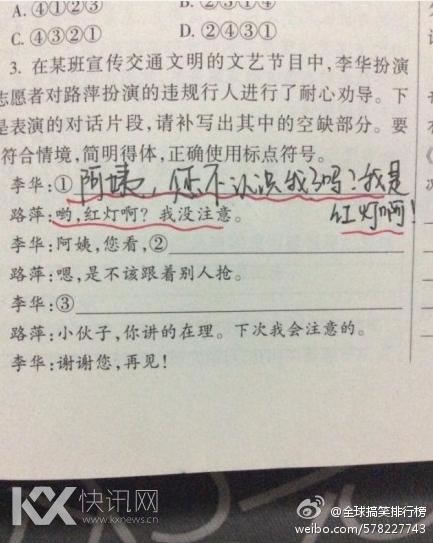 A.④①②③ B.②③①④
C.④③②① D.②④③①
3. 在某班宣传交通文明的文艺节目中,李华扮演
志愿者对路萍扮演的违规行人进行了耐心劝导。下
是表演的对话片段,请补写出其中的空缺部分。要
符合情境,简明得体,正确使用标点符号。
李华:①阿姨,您不认识我了吗?我是
红灯啊!
路萍:哟,红灯啊?我没注意。
李华:阿姨,您看,②
路萍:嗯,是不该跟着别人抢。
李华:③
路萍:小伙子,你讲的在理。下次我会注意的。
李华:谢谢您,再见!
KX 快讯网
www.kxnews.cn
@全球搞笑排行榜
weibo.com/578227743